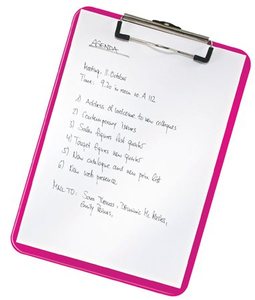 AGENDA
Meeting: 8. October
Time: 9.30 in room no A 112
1) Address of welcome to new colleagues
2) Contemporary issues
3) Sales figures last quarter
4) Target figures new quarter
5) New catalogue and new price list
6) New web presence
MAIL TO: Sara Thomas, Dominic Mc
Emily